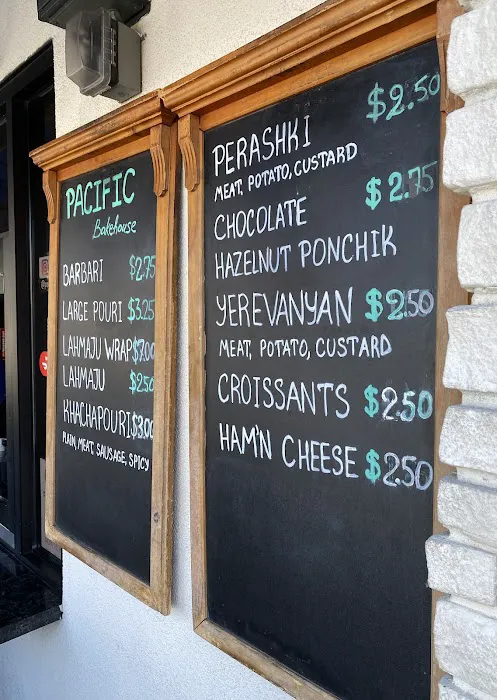 PACIFIC
Bakehouse
BARBARI $2.75
LARGE POURI $3.25
LAHMAJU WRAP $7.00
LAHMAJU $2.50
KHACHAPOURI $3.00
PLAIN, MEAT, SAUSAGE, SPICY
PERASHKI $2.50
MEAT, POTATO, CUSTARD
CHOCOLATE $2.75
HAZELNUT PONCHIK
YEREVANYAN $2.50
MEAT, POTATO, CUSTARD
CROISSANTS $2.50
HAM'N CHEESE $2.50